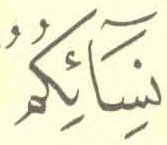 نِسَآئِكُمُ